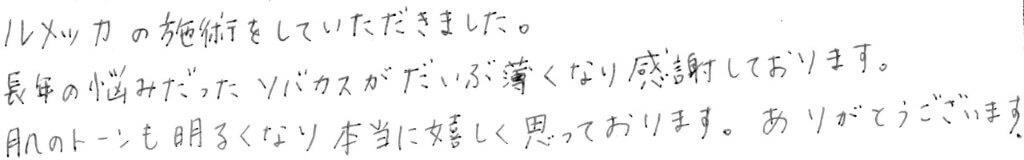 ルメッカの施術をしていただきました。
長年の悩みだったソバカスがだいぶ薄くなり感謝しております。
肌のトーンも明るくなり本当に嬉しく思っております。ありがとうございます.